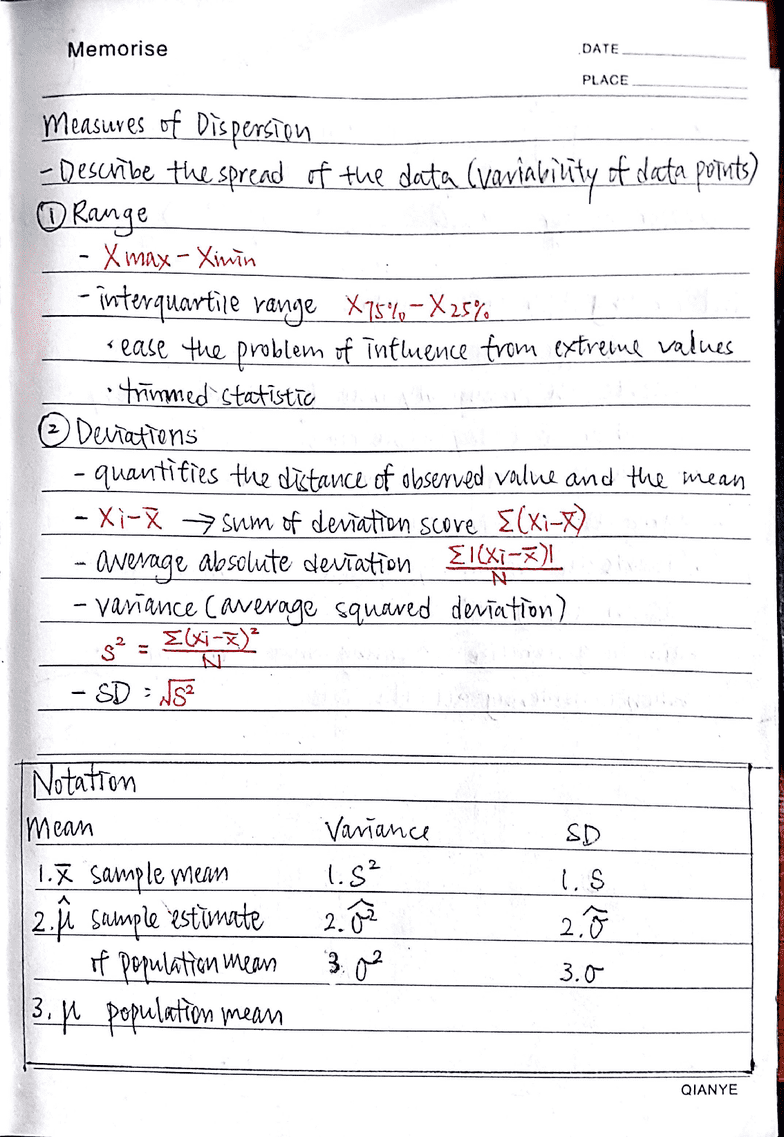 Memorise
DATE
PLACE
Measures of Dispersion
- Describe the spread of the data (variability of data points)
① Range
- Xmax - Xmin
- interquartile range X75% - X25%
· ease the problem of influence from extreme values
· trimmed statistic
② Deviations
- quantifies the distance of observed value and the mean
- Xi - x̄ → sum of deviation score Σ(Xi-x̄)
- average absolute deviation Σ|(Xi-x̄)|/N
- variance (average squared deviation)
s² = Σ(Xi-x̄)²/N
- SD = √s²
Notation
Mean Variance SD
1. x̄ sample mean 1. S² 1. S
2. μ̂ sample estimate 2. σ̂² 2. σ̂
of population mean 3. σ² 3. σ
3. μ population mean
QIANYE